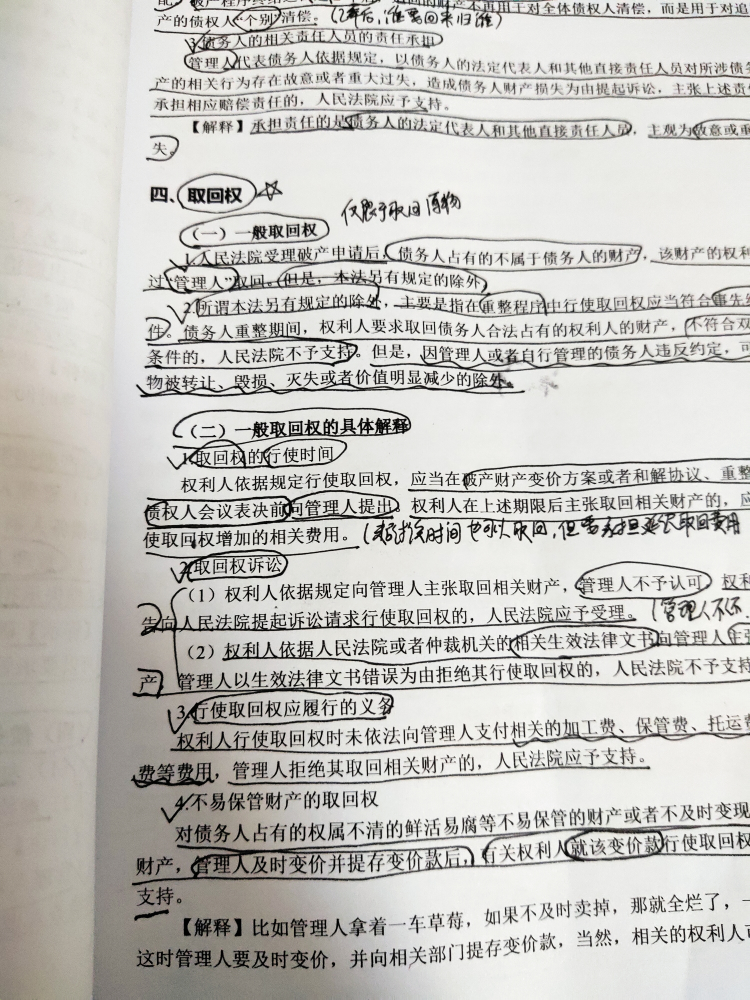 产的债权人“个别”清偿。
3.债务人的相关责任人员的责任承担
管理人代表债务人依据规定，以债务人的法定代表人和其他直接责任人员对所涉债务
产的相关行为存在故意或者重大过失，造成债务人财产损失为由提起诉讼，主张上述责
承担相应赔偿责任的，人民法院应予支持。
【解释】承担责任的是债务人的法定代表人和其他直接责任人员，主观为故意或重
失。
四、取回权 ☆
仅限于取回原物
（一）一般取回权
1.人民法院受理破产申请后，债务人占有的不属于债务人的财产，该财产的权利
过“管理人”取回。但是，本法另有规定的除外。
2.所谓本法另有规定的除外，主要是指在重整程序中行使取回权应当符合事先约
件。债务人重整期间，权利人要求取回债务人合法占有的权利人的财产，不符合双
条件的，人民法院不予支持。但是，因管理人或者自行管理的债务人违反约定，可
物被转让、毁损、灭失或者价值明显减少的除外。
（二）一般取回权的具体解释
1.取回权的行使时间
权利人依据规定行使取回权，应当在破产财产变价方案或者和解协议、重整
债权人会议表决前向管理人提出。权利人在上述期限后主张取回相关财产的，应
使取回权增加的相关费用。
时间也可以取回，但需承担延迟取回费用
2.取回权诉讼
（1）权利人依据规定向管理人主张取回相关财产，管理人不予认可，权利
告向人民法院提起诉讼请求行使取回权的，人民法院应予受理。（管理人不
（2）权利人依据人民法院或者仲裁机关的相关生效法律文书向管理人主张
产，管理人以生效法律文书错误为由拒绝其行使取回权的，人民法院不予支持
3.行使取回权应履行的义务
权利人行使取回权时未依法向管理人支付相关的加工费、保管费、托运费
费等费用，管理人拒绝其取回相关财产的，人民法院应予支持。
4.不易保管财产的取回权
对债务人占有的权属不清的鲜活易腐等不易保管的财产或者不及时变现
财产，管理人及时变价并提存变价款后，有关权利人就该变价款行使取回权
支持。
【解释】比如管理人拿着一车草莓，如果不及时卖掉，那就全烂了，一
这时管理人要及时变价，并向相关部门提存变价款，当然，相关的权利人可